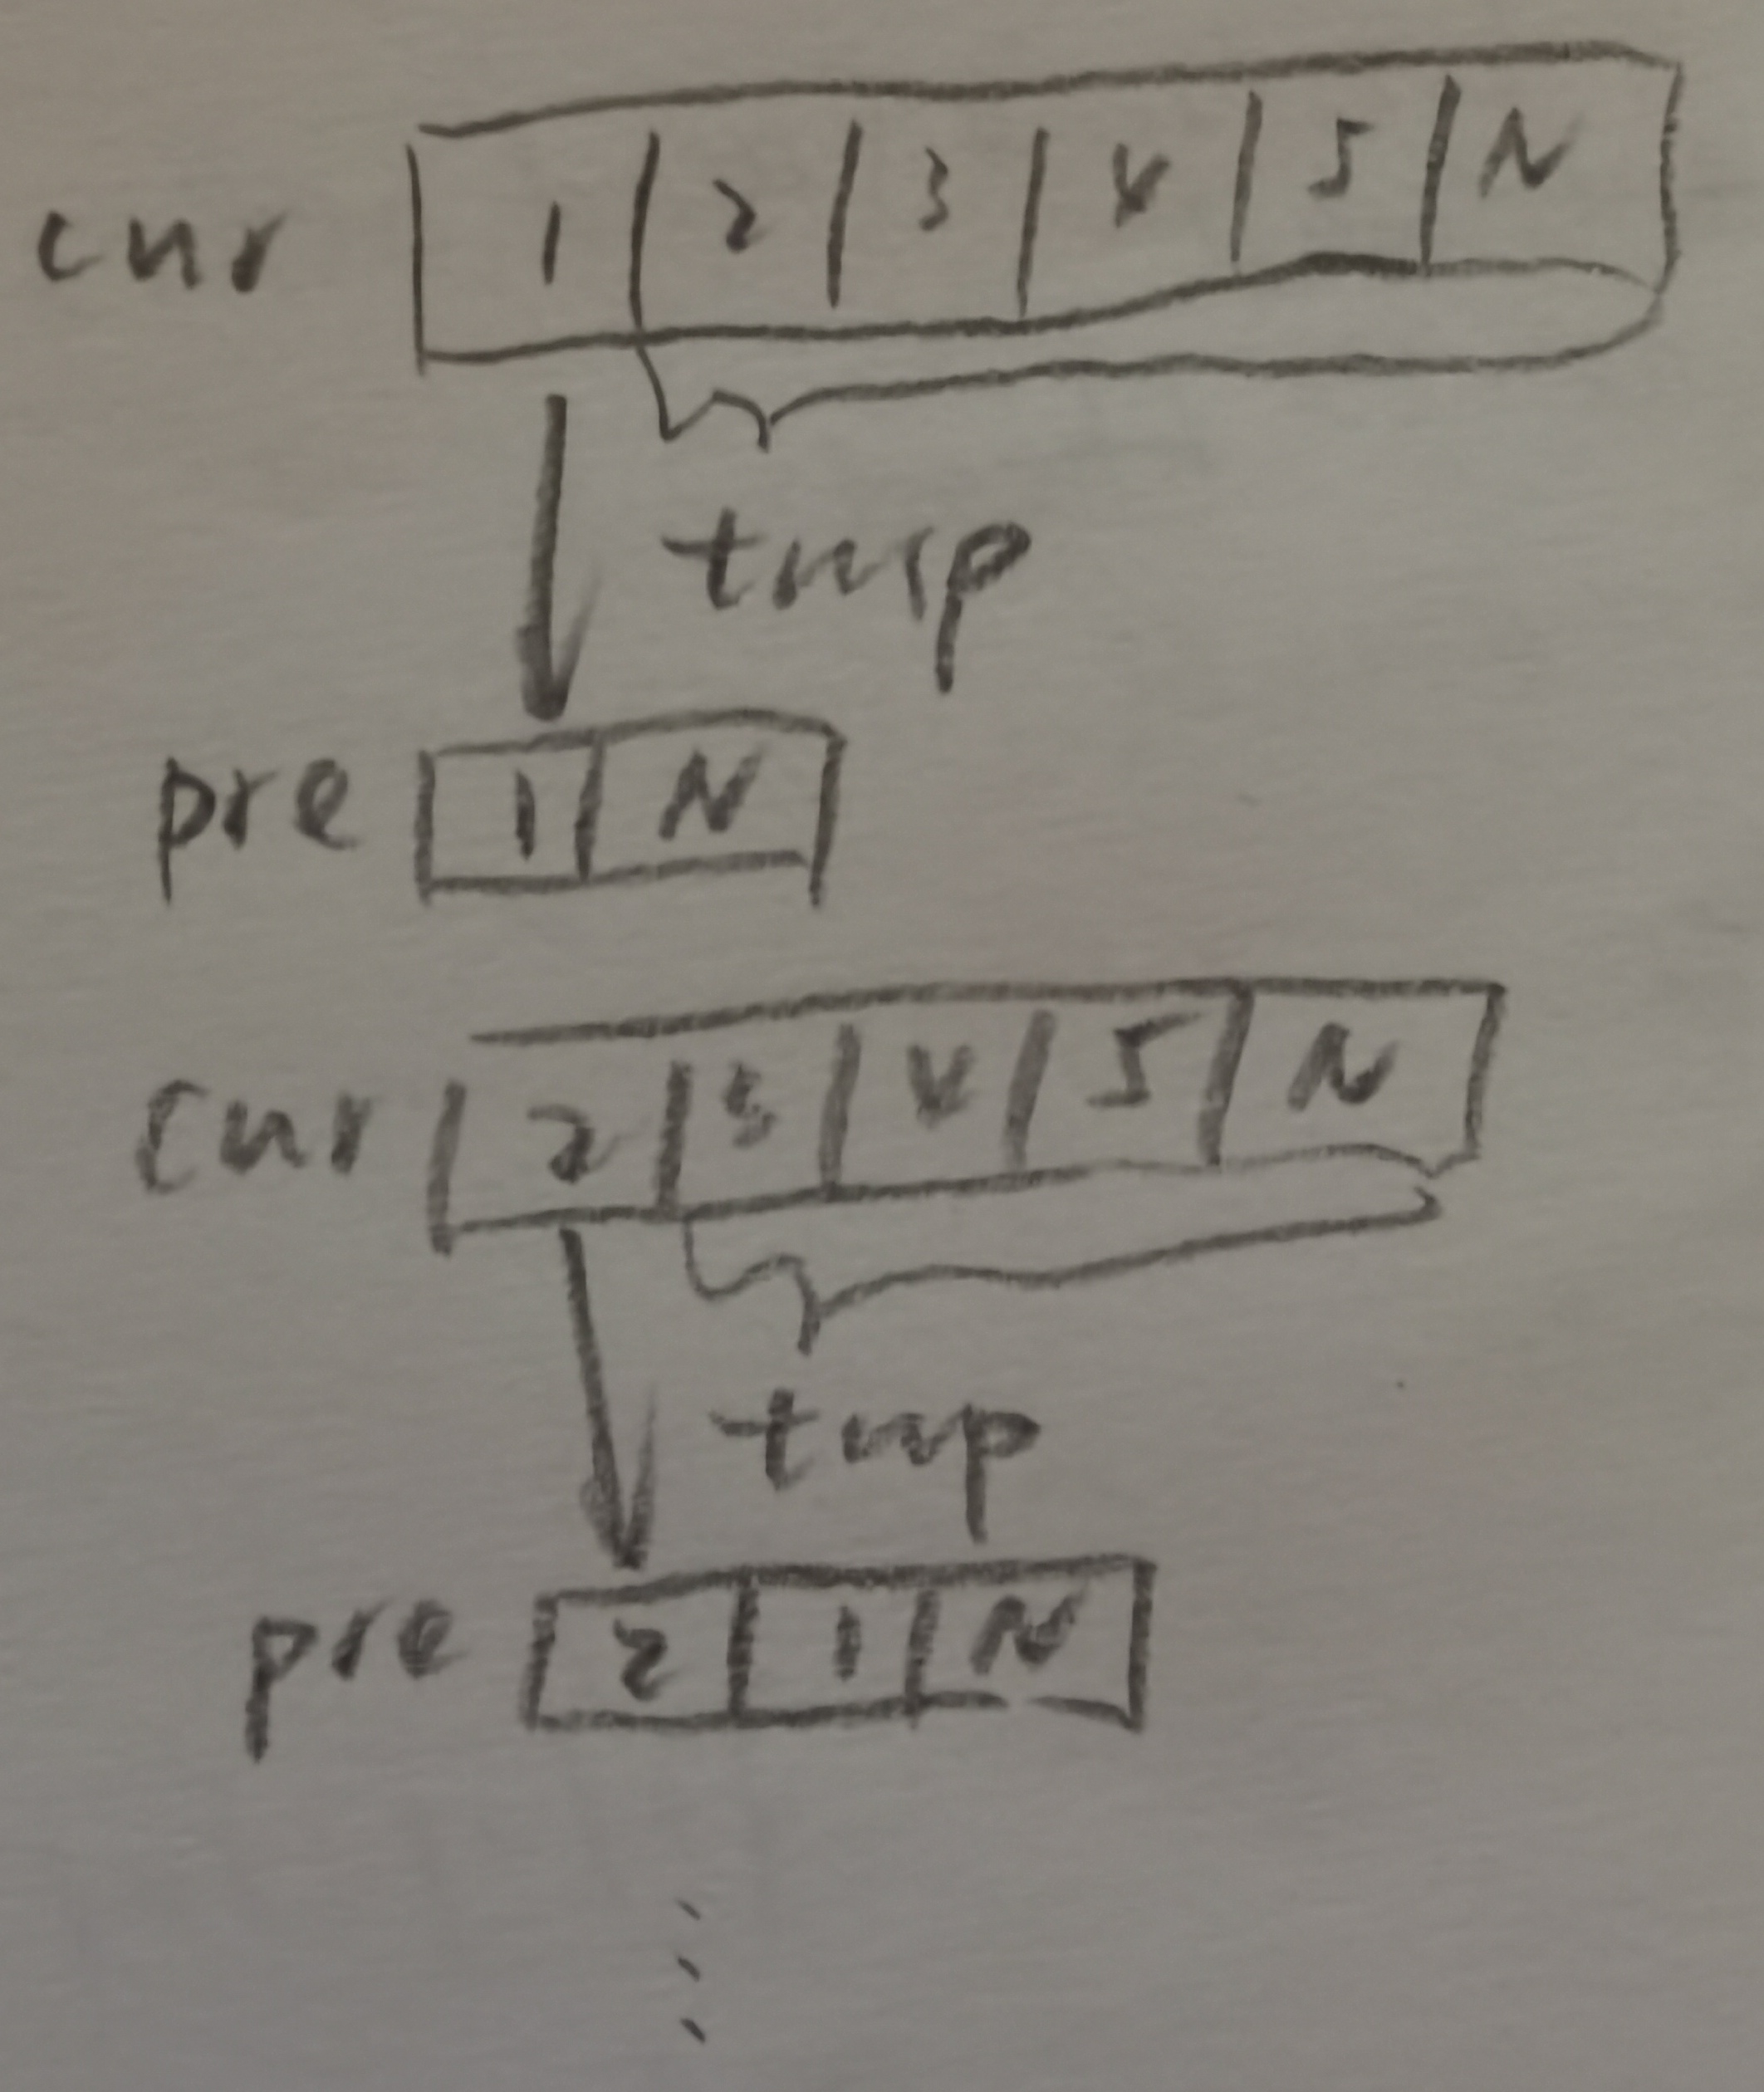 cur 1 2 3 4 5 N
tmp
pre 1 N
cur 2 3 4 5 N
tmp
pre 2 1 N